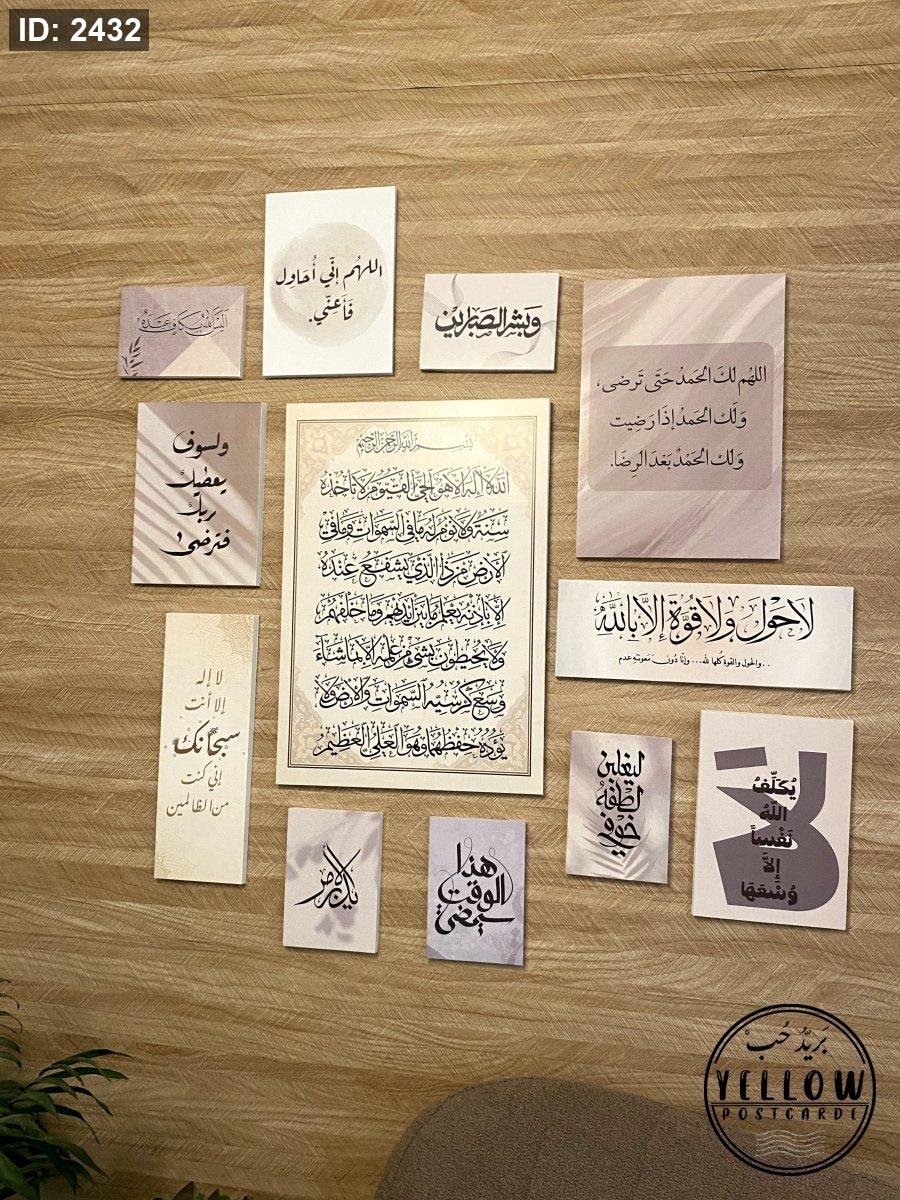 ID: 2432
اللهُم إنّي أُحَاول
فَأَعنّي.
أليس الله بكاف عبده
وَبشر الصَابرين
اللهُم لكَ الحَمدُ حَتى تَرضى،
وَلَك الحَمدُ إذَا رَضِيت
وَلَك الحَمْدُ بَعدَ الرِضَا.
ولسوف
يعطيك
ربك
فترضى
بسم الله الرحمن الرحيم
الله لا إله إلا هو الحي القيوم لا تأخذه
سنة ولا نوم له ما في السموات وما في
الأرض من ذا الذي يشفع عنده
إلا بإذنه يعلم ما بين أيديهم وما خلفهم
ولا يحيطون بشيء من علمه إلا بما شاء
وسع كرسيه السموات والأرض ولا
يؤده حفظهما وهو العلي العظيم
لَا حَوْلَ وَلَا قُوَّةَ إِلَّا بِاللَّهِ
..والحول والقوة كلها لله... وأنا دُون مَعونتهِ عدم
لا إله
إلا أنت
سبحانك
إني كنت
من الظالمين
ليغلبن
لطفه
خوفي
لَا
يُكَلِّفُ
اللَّهُ
نَفْساً
إِلَّا
وُسْعَهَا
يدبر الأمر
هذا
الوقت
سيمضي
بَريدُ حُبْ
YELLOW
POSTCARDE